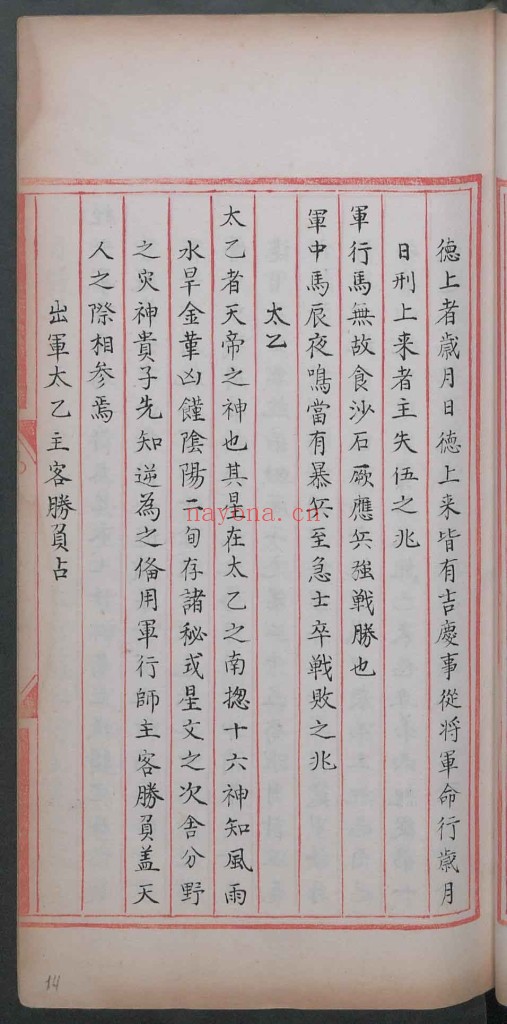 德上者歲月日德上来皆有吉慶事從将軍命行歲月
日刑上来者主失伍之兆
軍行馬無故食沙石厥應兵強戦勝也
軍中馬辰夜鳴當有暴兵至急士卒戦敗之兆
太乙
太乙者天帝之神也其星在太乙之南揔十六神知風雨
水旱金革凶饉陰陽二旬存諸秘或星文之次舎分野
之灾神貴子先知逆為之俻用軍行師主客勝負盖天
人之際相参焉
出軍太乙主客勝負占
nayona.cn
14